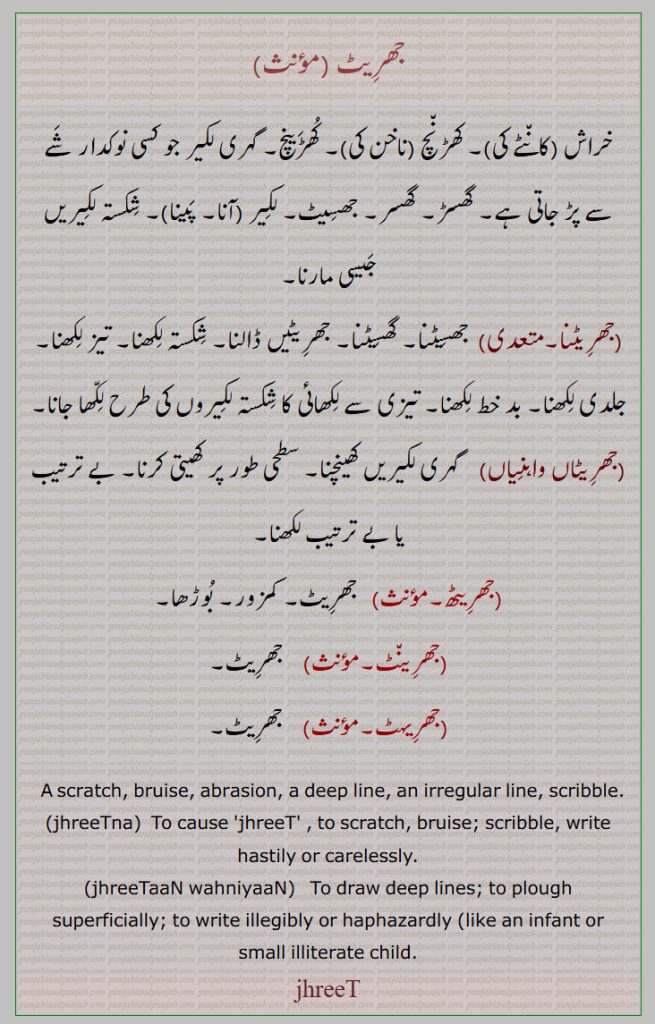 جھرِیٹ (مؤنث)
خراش (کانٹّے کی)۔ کھڑنّچ (ناخن کی)۔ کُھڑَینچ۔ گہری لکیر جو کسی نوکدار شَے
سے پڑ جاتی ہے۔ گھسڑ۔ گھسر۔ جھسِیٹ۔ لکِیر (آنا۔ پَینا)۔ شِکستہ لکِیریں
جَیسی مارنا۔
(جھرِیٹنا۔متعدی) جھسِیٹنا۔ گھسِیٹنا۔ جھرِیٹیں ڈالنا۔ شِکستہ لِکھنا۔ تیز لِکھنا۔
جلدی لِکھنا۔ بد خط لِکھنا۔ تیزی سے لِکھائی کا شِکستہ لکِیروں کی طرح لِکّھا جانا۔
(جھرِیٹاں واہنِیاں) گہری لکیریں کھینچنا۔ سطحی طور پر کھیتی کرنا۔ بے ترتیب
یا بے ترتیب لکھنا۔
(جھرِیٹھ۔مؤنث) جھرِیٹ۔ کمزور۔ بُوڑھا۔
(جھرِینّٹ۔مؤنث) جھرِیٹ۔
(جھرِیہٹ۔مؤنث) جھرِیٹ۔
A scratch, bruise, abrasion, a deep line, an irregular line, scribble.
(jhreeTna) To cause 'jhreeT' , to scratch, bruise; scribble, write
hastily or carelessly.
(jhreeTaaN wahniyaaN) To draw deep lines; to plough
superficially; to write illegibly or haphazardly (like an infant or
small illiterate child.
jhreeT